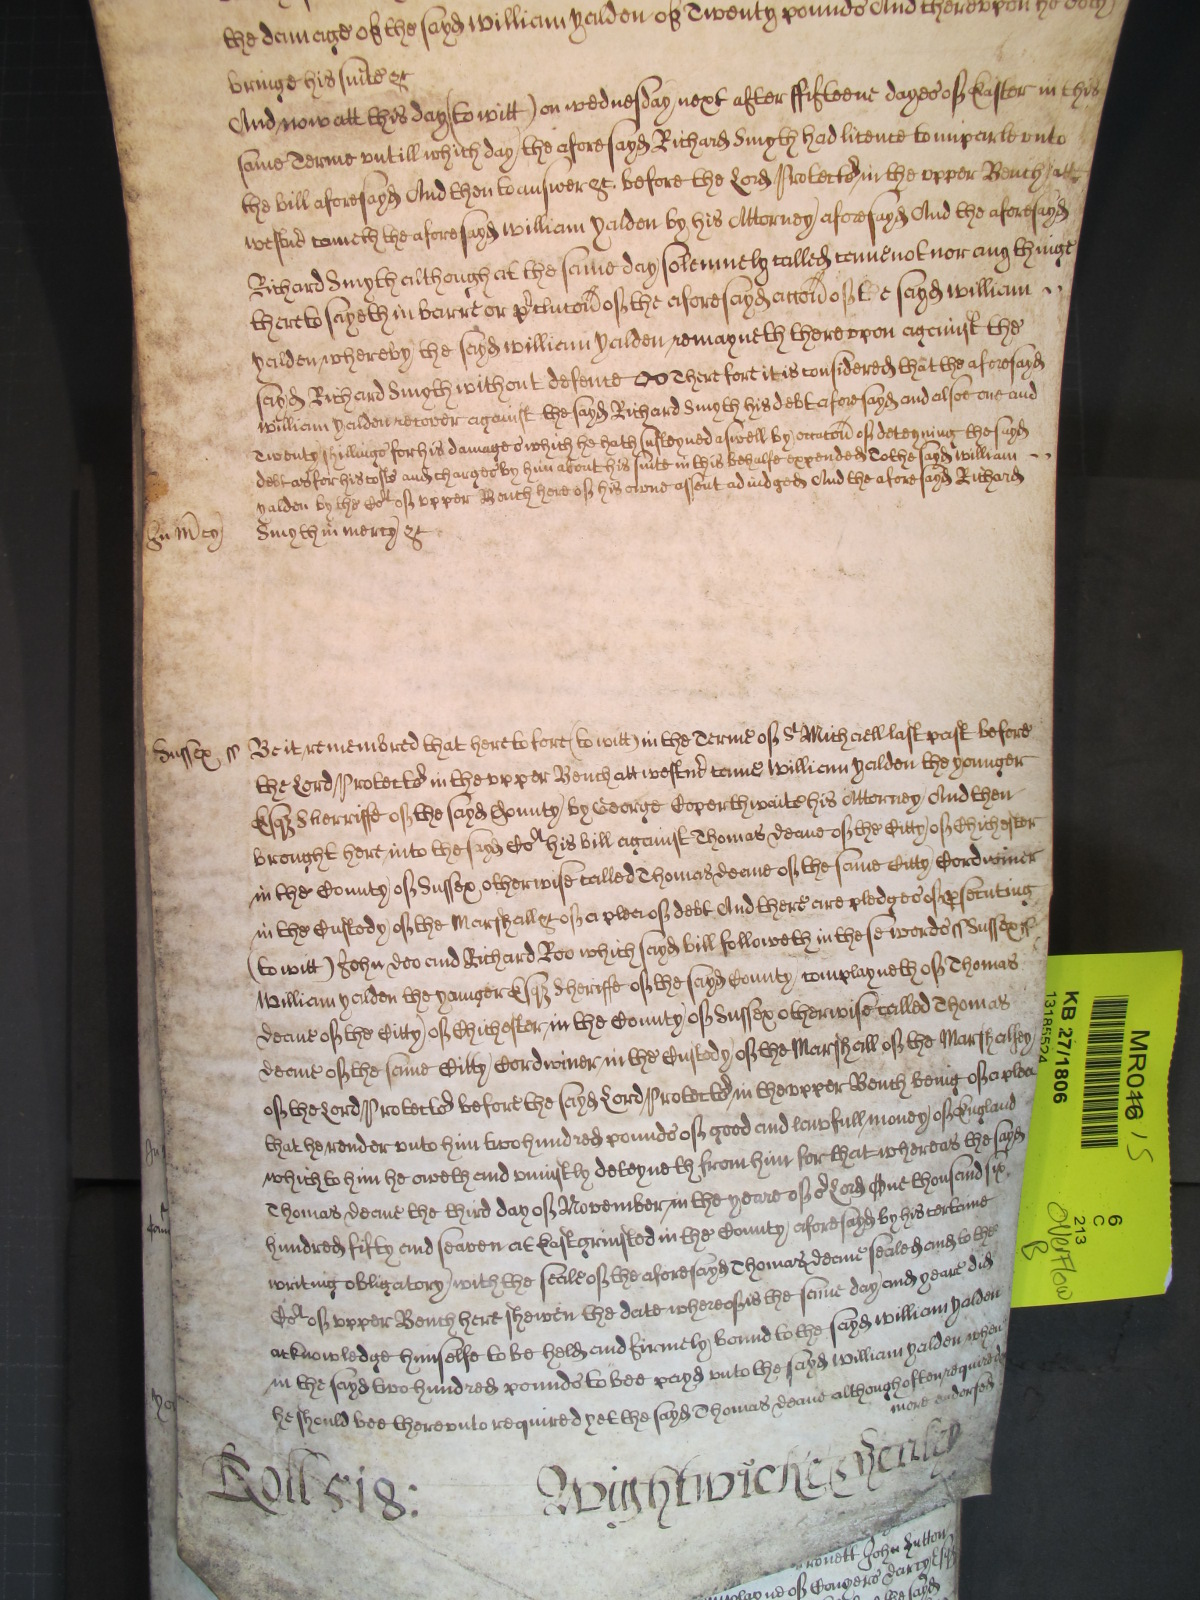 the damage of the sayd William Yalden of Twenty pounds And thereupon he
bringe his suite &c
And now att this day (to witt) on wednesday next after ffifteene dayes of Easter in this
same Terme untill which day the aforesayd Richard Smyth had licence to imparle unto
the bill aforesayd And then to answer &c. before the Lord Protector in the upper Bench att
westm̃r cometh the aforesayd William Yalden by his Attorney aforesayd And the aforesayd
Richard Smyth although at the same day solemnely called came not nor any thinge
thereto sayeth in barre or p̃clucõn of the aforesayd accõn of the sayd William
Yalden whereby the sayd William Yalden remayneth thereupon against the
sayd Richard Smyth without defence Therefore it is considered that the aforesayd
William Yalden recover against the sayd Richard Smyth his debt aforesayd and alsoe one and
Twenty shillings for his damages which he hath susteyned aswell by occacõn of deteyning the sayd
debt as for his costs and charges by him about his suite in this behalfe expended To the sayd William
Yalden by the Cot of upper Bench here of his owne assent adiudged And the aforesayd Richard
In Mcy Smyth in mercy &c
Sussex ss Be it remembred that heretofore (to witt) in the Terme of St Michaell last past before
the Lord Protector in the upper Bench att westm̃r came William Yalden the younger
Esqz Sherriffe of the sayd County by George Coperthwaite his Attorney And then
brought here into the sayd Cot his bill against Thomas Deane of the Citty of Chichester
in the County of Sussex otherwise called Thomas Deane of the same Citty Cordwiner
in the Custody of the Marshall &c of a plea of debt And there are pledges of p̱secuting
(to witt) John Doo and Richard Roo which sayd bill followeth in these words ss Sussex ss
William Yalden the younger Esqz Sheriffe of the sayd County complayneth of Thomas
Deane of the Citty of Chichester in the County of Sussex otherwise called Thomas
Deane of the same Citty Cordwiner in the Custody of the Marshall of the Marshalsey
of the Lord Protector before the sayd Lord Protector in the upper Bench being of a plea
that he render unto him two hundred pounds of good and lawfull money of England
which to him he oweth and uniustly deteyneth from him for that whereas the sayd
Thomas Deane the third day of November in the yeare of or Lord One thousand six
hundred fifty and seaven at Eastgrinsted in the County aforesayd by his certaine
writing obligatory with the seale of the aforesayd Thomas Deane sealed and to the
Cot of upper Bench here shewen the date whereof is the same day and yeare did
acknowledge himselfe to be held and firmely bound to the sayd William Yalden
in the sayd two hundred pounds to bee payd unto the sayd William Yalden when
he should bee thereunto required yet the sayd Thomas Deane although often required
more endorsed
Roll 518: Wightwicke &
John
complayne of Conyers Darcy Esqz
the sayd
MR046 / 5
KB 27/1806
13185524
6
C
213
Overflow
B